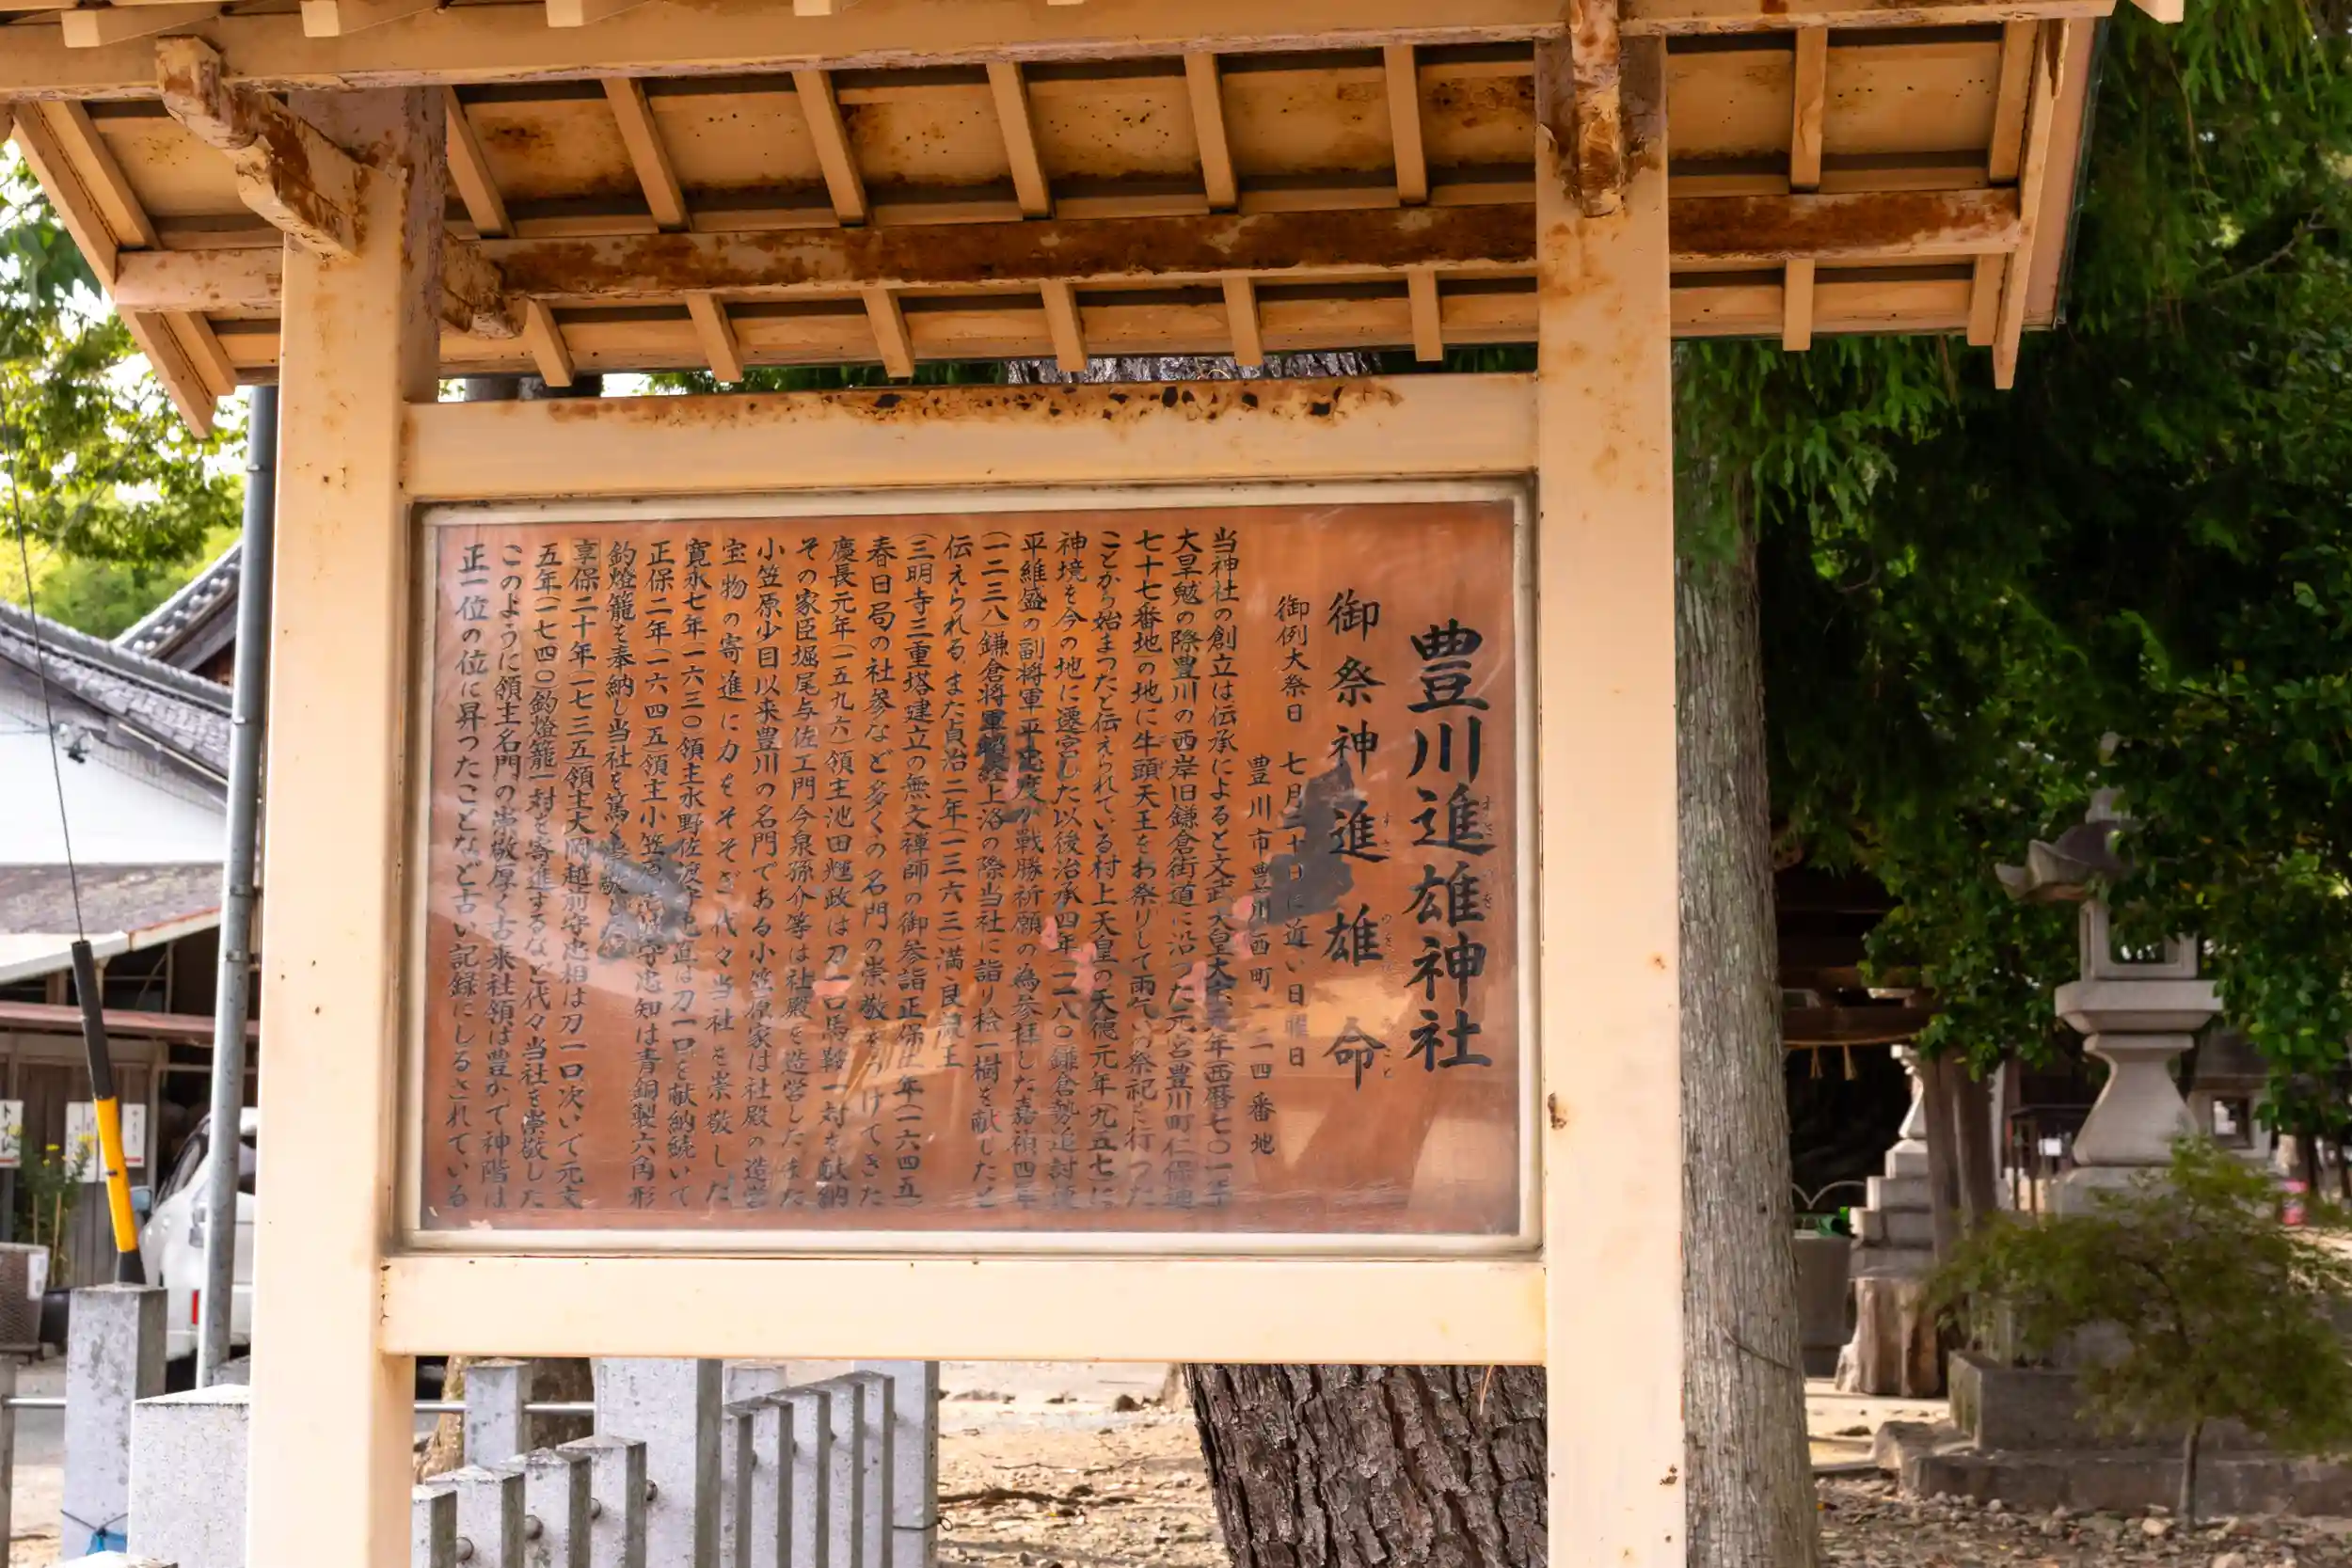 豊川進雄神社
御祭神 進雄命
御例大祭日 七月二十日に近い日曜日
豊川市豊川西町一二四番地
当神社の創立は伝承によると文武天皇大宝元年西暦七〇一年
大旱魃の際豊川の西岸旧鎌倉街道に沿った元宮豊川町仁保通
七十七番地の地に牛頭天王をお祭りして雨乞いの祭祀を行った
ことから始まったと伝えられている村上天皇の天徳元年九五七に
神境を今の地に遷宮した以後治承四年一一八〇鎌倉勢追討使
平維盛の副将軍平忠度が戦勝祈願の為参拝した嘉禎四年
(一二三八)鎌倉将軍頼経上洛の際当社に詣り桧一樹を献したと
伝えられる また貞治二年(一三六三)満良親王
(三明寺三重塔建立の無文禅師の御参詣正保二年(一六四五)
春日局の社参など多くの名門の崇敬をうけてきた
慶長元年(一五九六)領主池田輝政は刀一口馬鞍一対を献納
その家臣堀尾与佐エ門今泉孫介等は社殿を造営したまた
小笠原少目以来豊川の名門である小笠原家は社殿の造営
宝物の寄進に力をそそぎ代々当社を崇敬した
寛永七年一六三〇領主水野佐渡守忠直は刀一口を献納続いて
正保二年(一六四五)領主小笠原 守忠知は青銅製六角形
釣燈籠を奉納し当社を篤く崇敬した
享保二十年(一七三五)領主大岡越前守忠相は刀一口次いで元文
五年(一七四〇)釣燈籠一対を寄進するなど代々当社を崇敬した
このように領主名門の崇敬厚く古来社領は豊かで神階は
正一位の位に昇ったことなど古い記録にしるされている